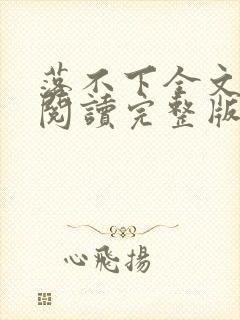 落不下全文
閱讀完整版
心飛揚